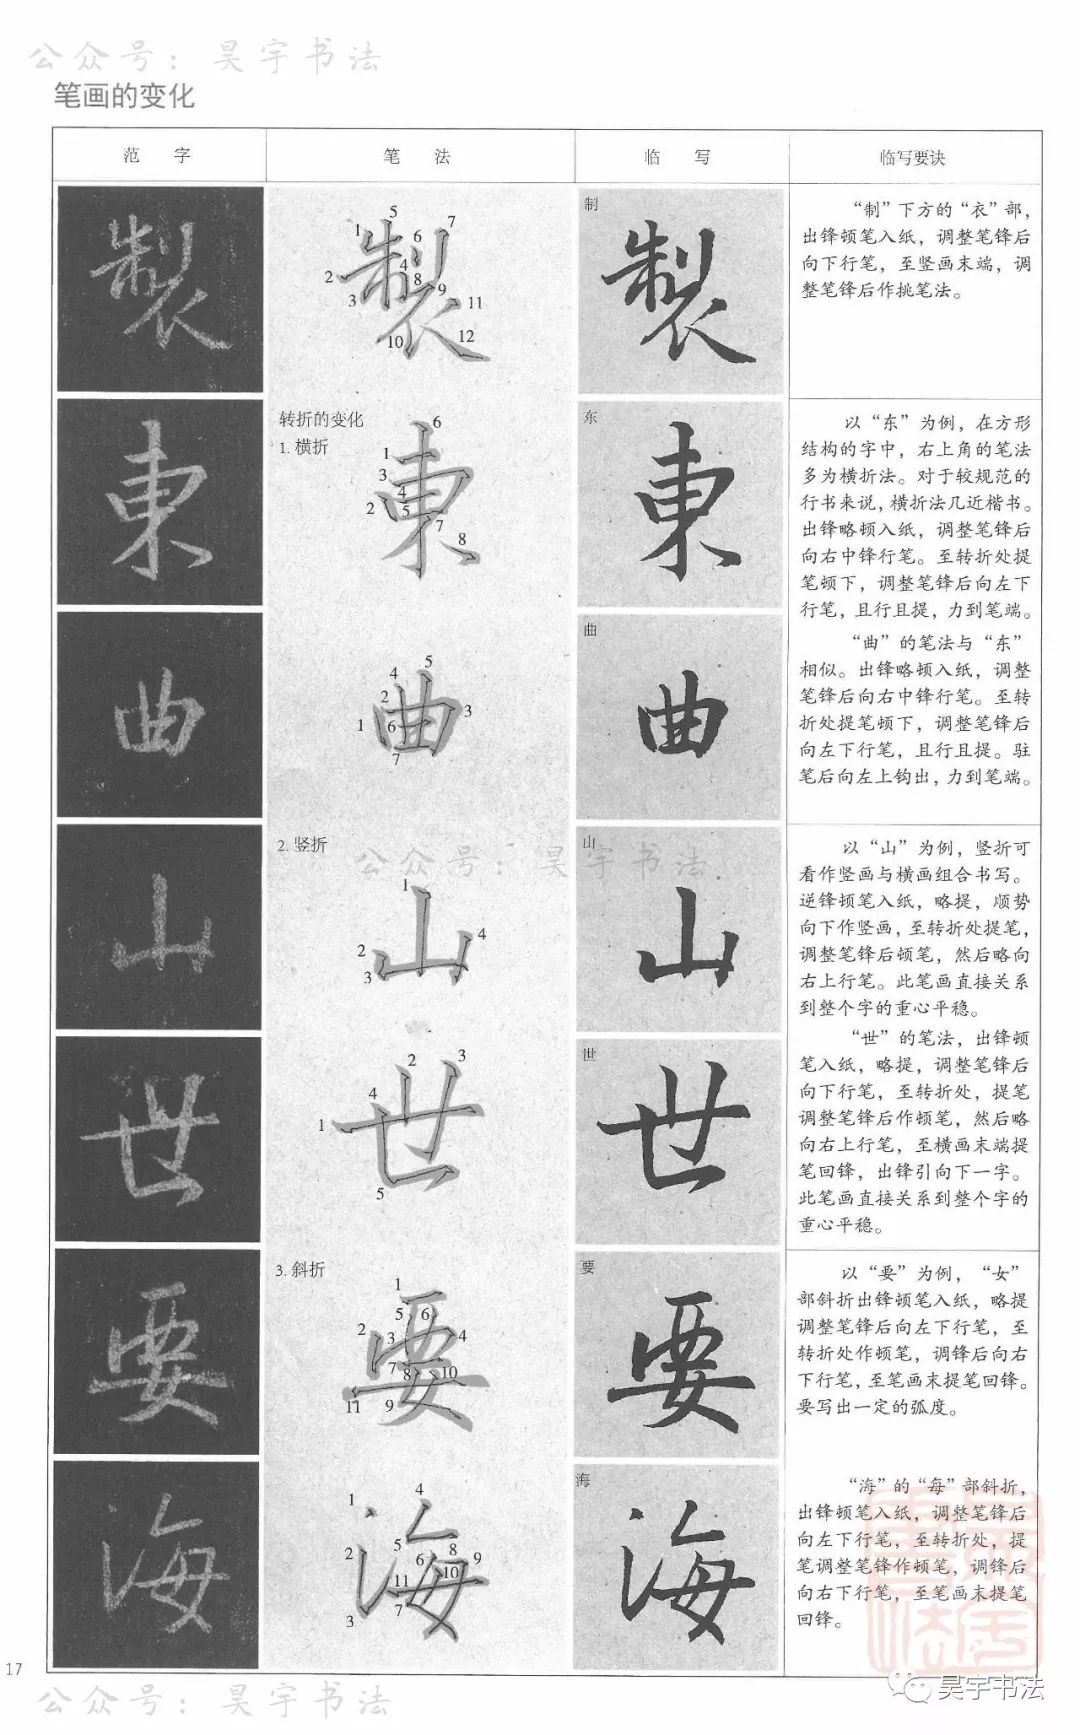 公众号：昊宇书法
笔画的变化
范 字
笔 法
临 写
临写要诀
製
5
1
6
7
2
4
8
3
9
11
10
12
制
製
“制”下方的“衣”部，
出锋顿笔入纸，调整笔锋后
向下行笔，至竖画末端，调
整笔锋后作挑笔法。
東
转折的变化
1. 横折
6
1
3
4
2
5
7
8
东
東
以“东”为例，在方形
结构的字中，右上角的笔法
多为横折法。对于较规范的
行书来说，横折法几近楷书。
出锋略顿入纸，调整笔锋后
向右中锋行笔。至转折处提
笔顿下，调整笔锋后向左下
行笔，且行且提，力到笔端。
曲
5
4
2
3
1
6
7
曲
曲
“曲”的笔法与“东”
相似。出锋略顿入纸，调整
笔锋后向右中锋行笔。至转
折处提笔顿下，调整笔锋后
向左下行笔，且行且提。驻
笔后向左上钩出，力到笔端。
山
2. 竖折
公众号：昊宇书法
1
4
2
3
山
山
以“山”为例，竖折可
看作竖画与横画组合书写。
逆锋顿笔入纸，略提，顺势
向下作竖画，至转折处提笔，
调整笔锋后顿笔，然后略向
右上行笔。此笔画直接关系
到整个字的重心平稳。
世
2
3
4
1
5
世
世
“世”的笔法，出锋顿
笔入纸，略提，调整笔锋后
向下行笔，至转折处，提笔
调整笔锋后作顿笔，然后略
向右上行笔，至横画末端提
笔回锋，出锋引向下一字。
此笔画直接关系到整个字的
重心平稳。
要
3. 斜折
1
5
6
2
3
4
7
8
10
11
9
要
要
以“要”为例，“女”
部斜折出锋顿笔入纸，略提
调整笔锋后向左下行笔，至
转折处作顿笔，调锋后向右
下行笔，至笔画末提笔回锋。
要写出一定的弧度。
海
4
1
5
8
2
6
9
10
11
7
3
海
海
“海”的“每”部斜折，
出锋顿笔入纸，调整笔锋后
向左下行笔，至转折处，提
笔调整笔锋作顿笔，调锋后
向右下行笔，至笔画末提笔
回锋。
17
公众号：昊宇书法
昊宇书法